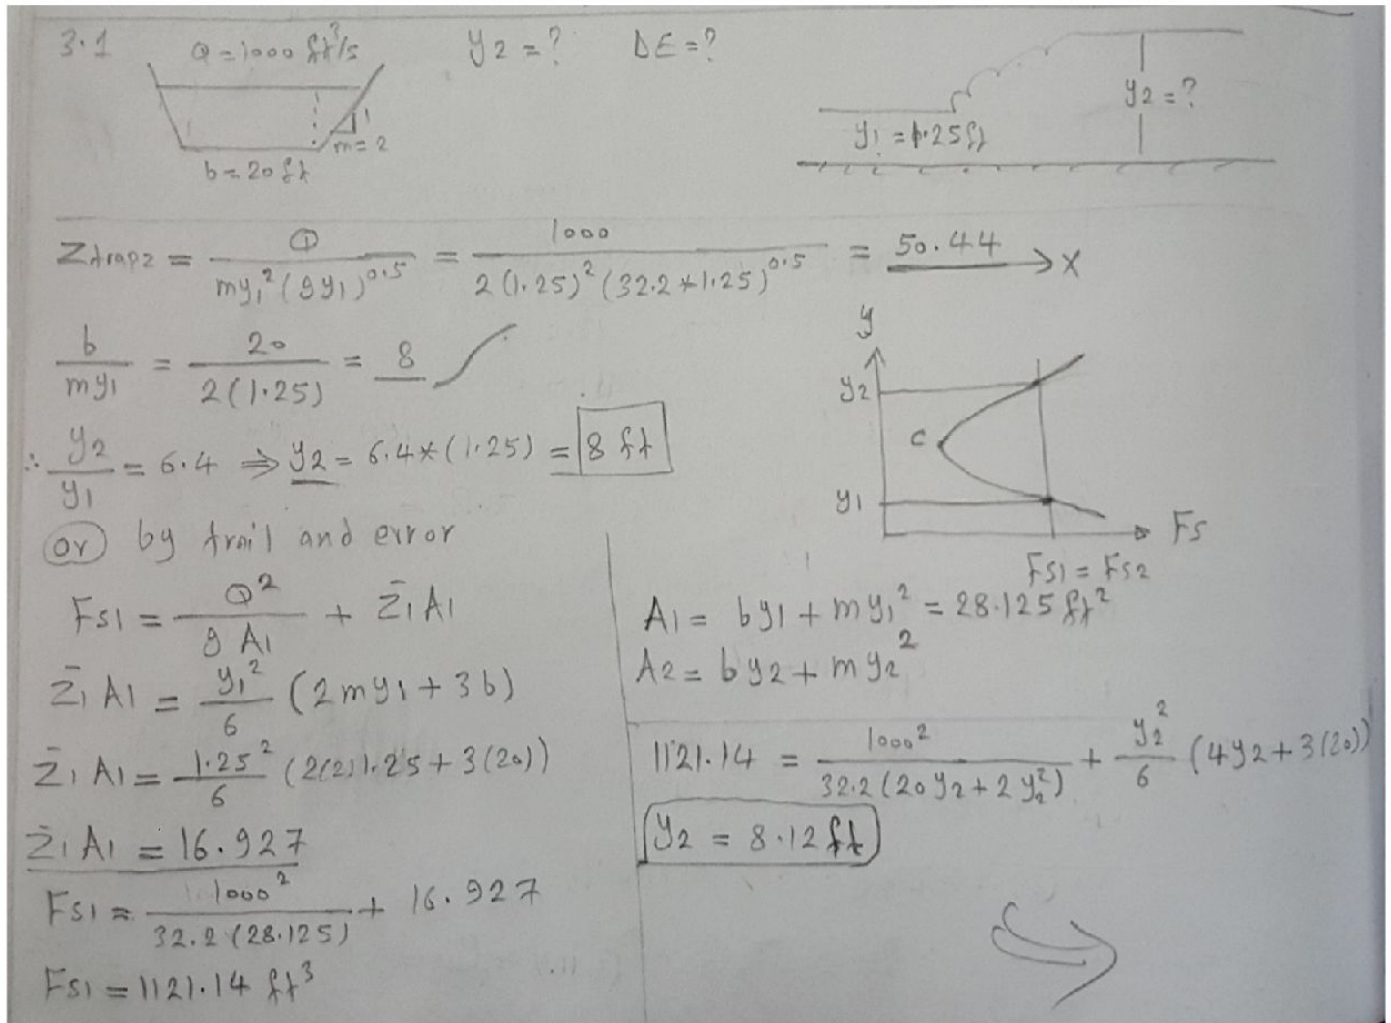 3.1 Q = 1000 ft³/s y2 = ? ΔE = ?
1
m = 2
b = 20 ft
y2 = ?
y1 = 1.25 ft
Ztrapz = Q / my1²(gy1)^0.5 = 1000 / 2(1.25)²(32.2*1.25)^0.5 = 50.44 → X
b / my1 = 20 / 2(1.25) = 8
∴ y2 / y1 = 6.4 ⇒ y2 = 6.4*(1.25) = 8 ft
or by trail and error
Fs1 = Q² / g A1 + Z̄1 A1
Z̄1 A1 = y1² / 6 (2my1 + 3b)
Z̄1 A1 = 1.25² / 6 (2(2)1.25 + 3(20))
Z̄1 A1 = 16.927
Fs1 = 1000² / 32.2(28.125) + 16.927
Fs1 = 1121.14 ft³
y
y2
C
y1
Fs
Fs1 = Fs2
A1 = by1 + my1² = 28.125 ft²
A2 = by2 + my2²
1121.14 = 1000² / 32.2(20y2 + 2y2²) + y2² / 6 (4y2 + 3(20))
y2 = 8.12 ft